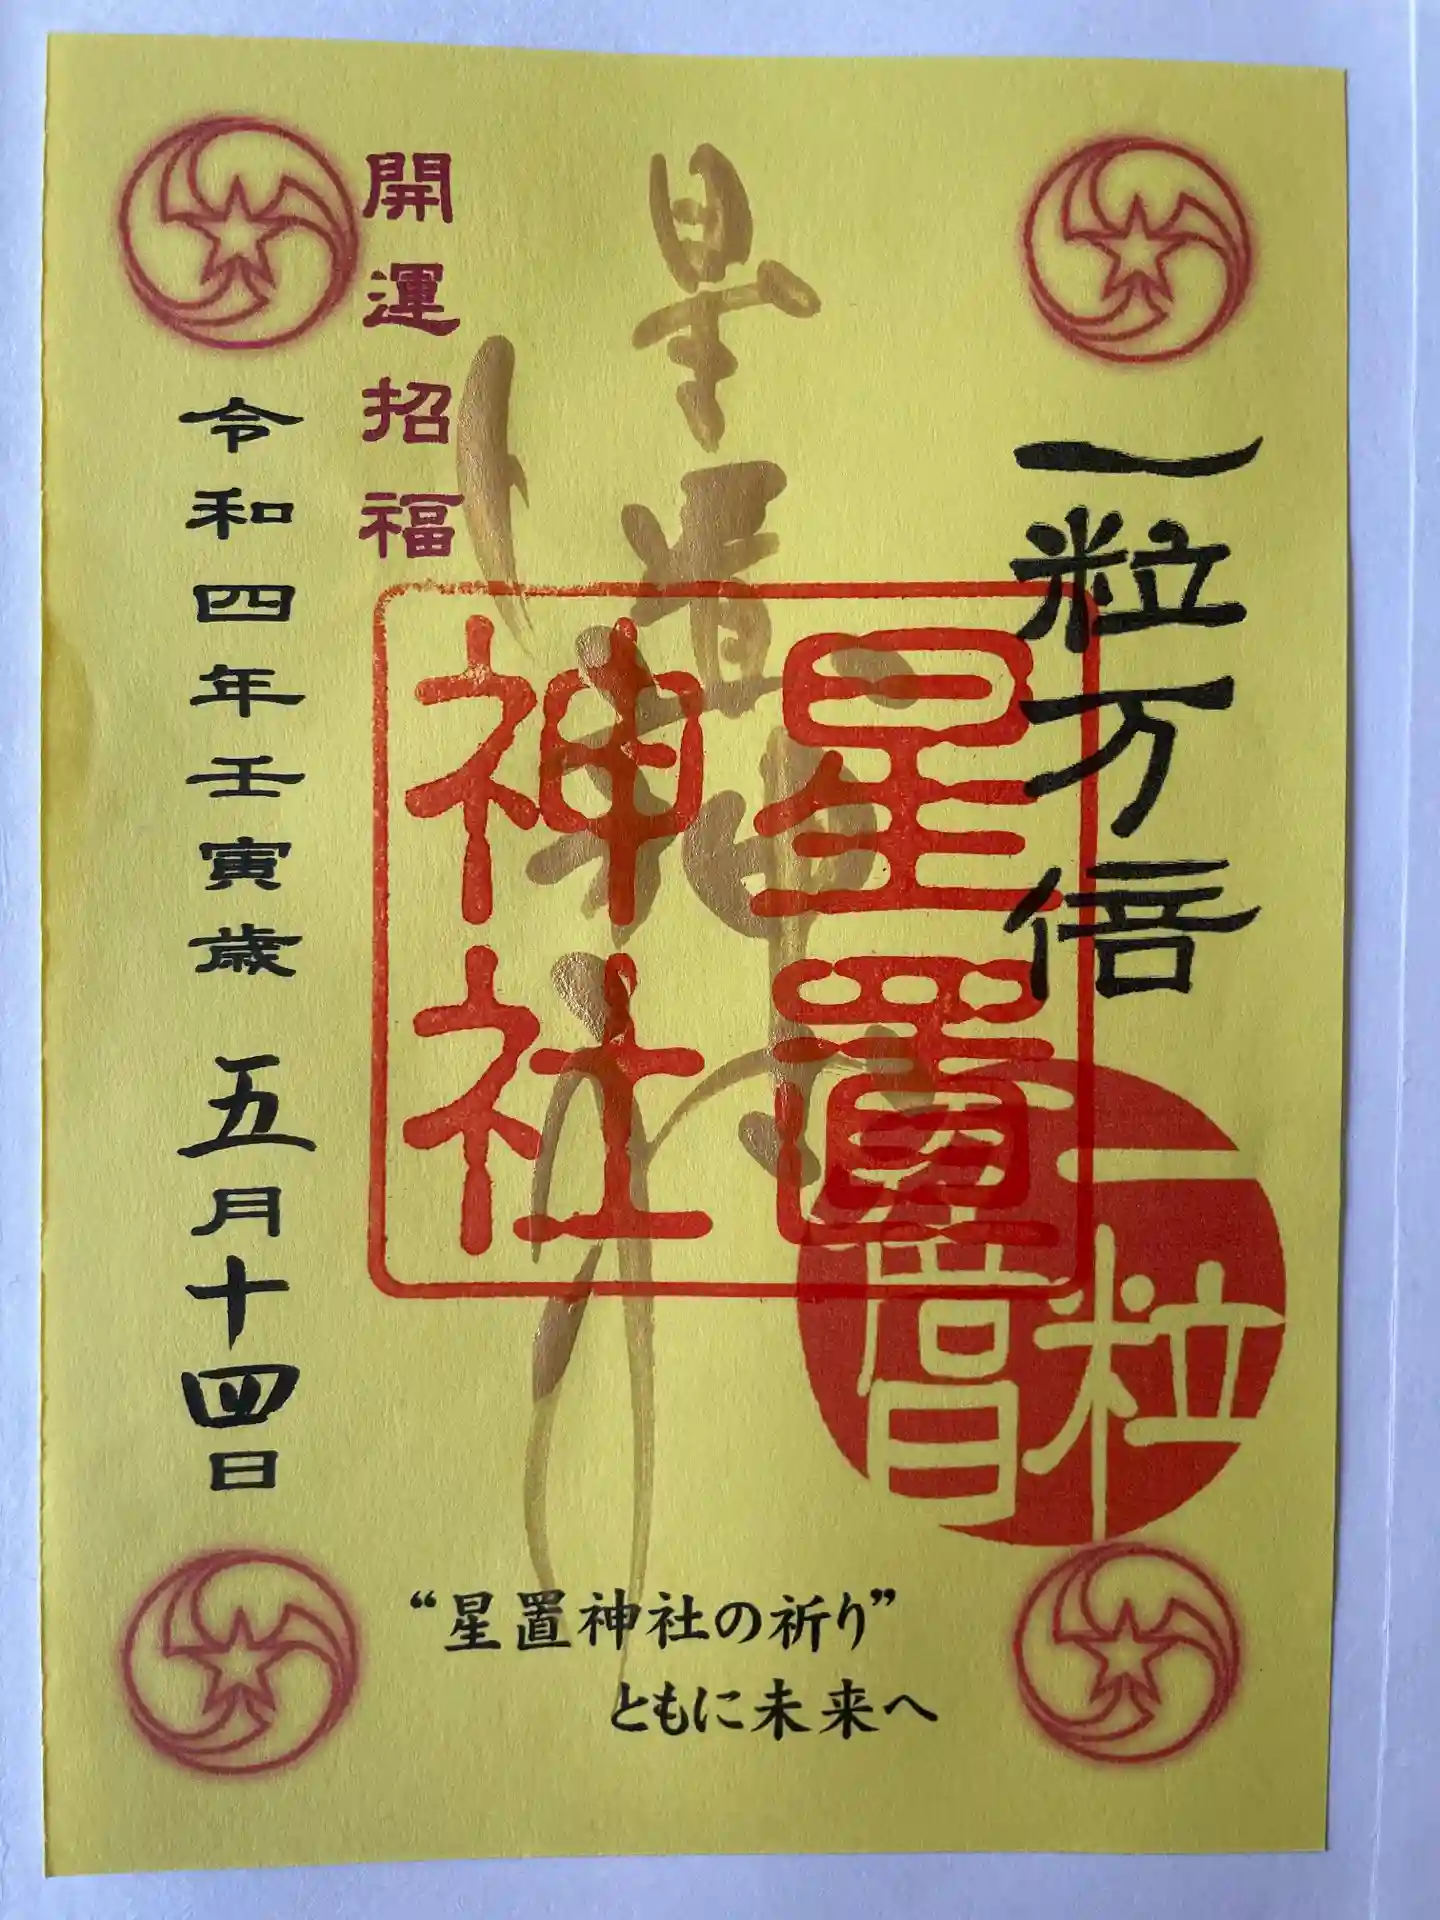 一粒万倍
星置神社
星置
神社
一粒
開運招福
令和四年壬寅歳 五月十四日
“星置神社の祈り”
ともに未来へ